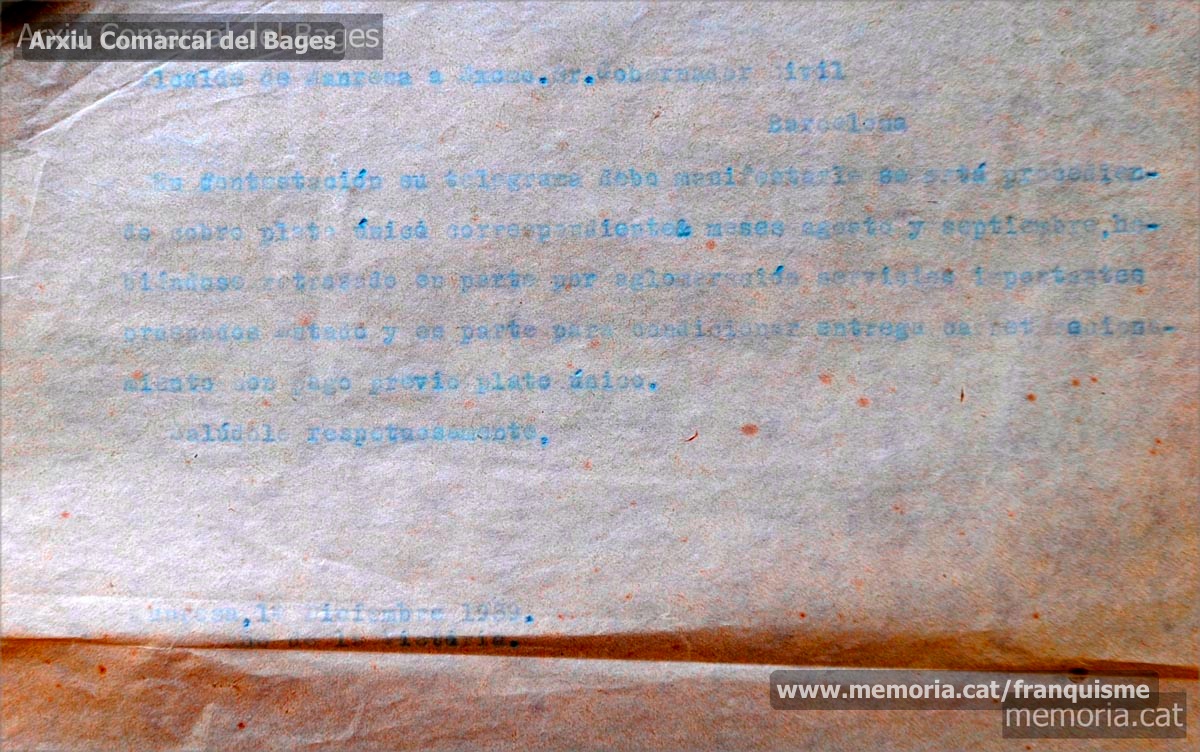 Arxiu Comarcal del Bages
Arxiu Comarcal del Bages
Alcalde de Manresa a Excmo.Sr.Gobernador Civil
Barcelona
En contestación su telegrama debo manifestarle se está procedien-
do cobro plato único correspondientes meses agosto y septiembre,ha-
biéndose retrasado en parte por aglomeración servicios importantes
ordenados Estado y en parte para condicionar entrega carnet raciona-
miento con pago previo plato único.
Salúdole respetuosamente.
Manresa, Diciembre 1939.
de la Victoria.
www.memoria.cat/franquisme
memoria.cat